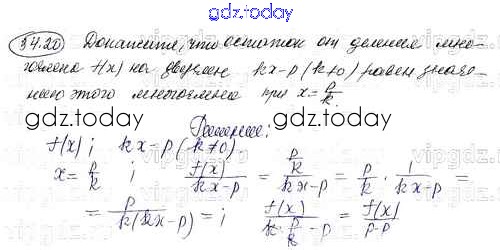 gdz.today
34.20 Докажите, что остаток от деления мно-
гочлена f(x) на двучлен kx-p (k≠0) равен значе-
нию этого многочлена при x = p/k.
gdz.today gdz.today
Решение:
f(x) ; kx-p (k≠0).
x = p/k ; f(x)/(kx-p) = (p/k)/(kx-p) = p/k · 1/(kx-p) =
= p/(k(kx-p)) = ; f(x)/(k·p/k - p) = f(x)/(p-p)
gdz.today gdz.today